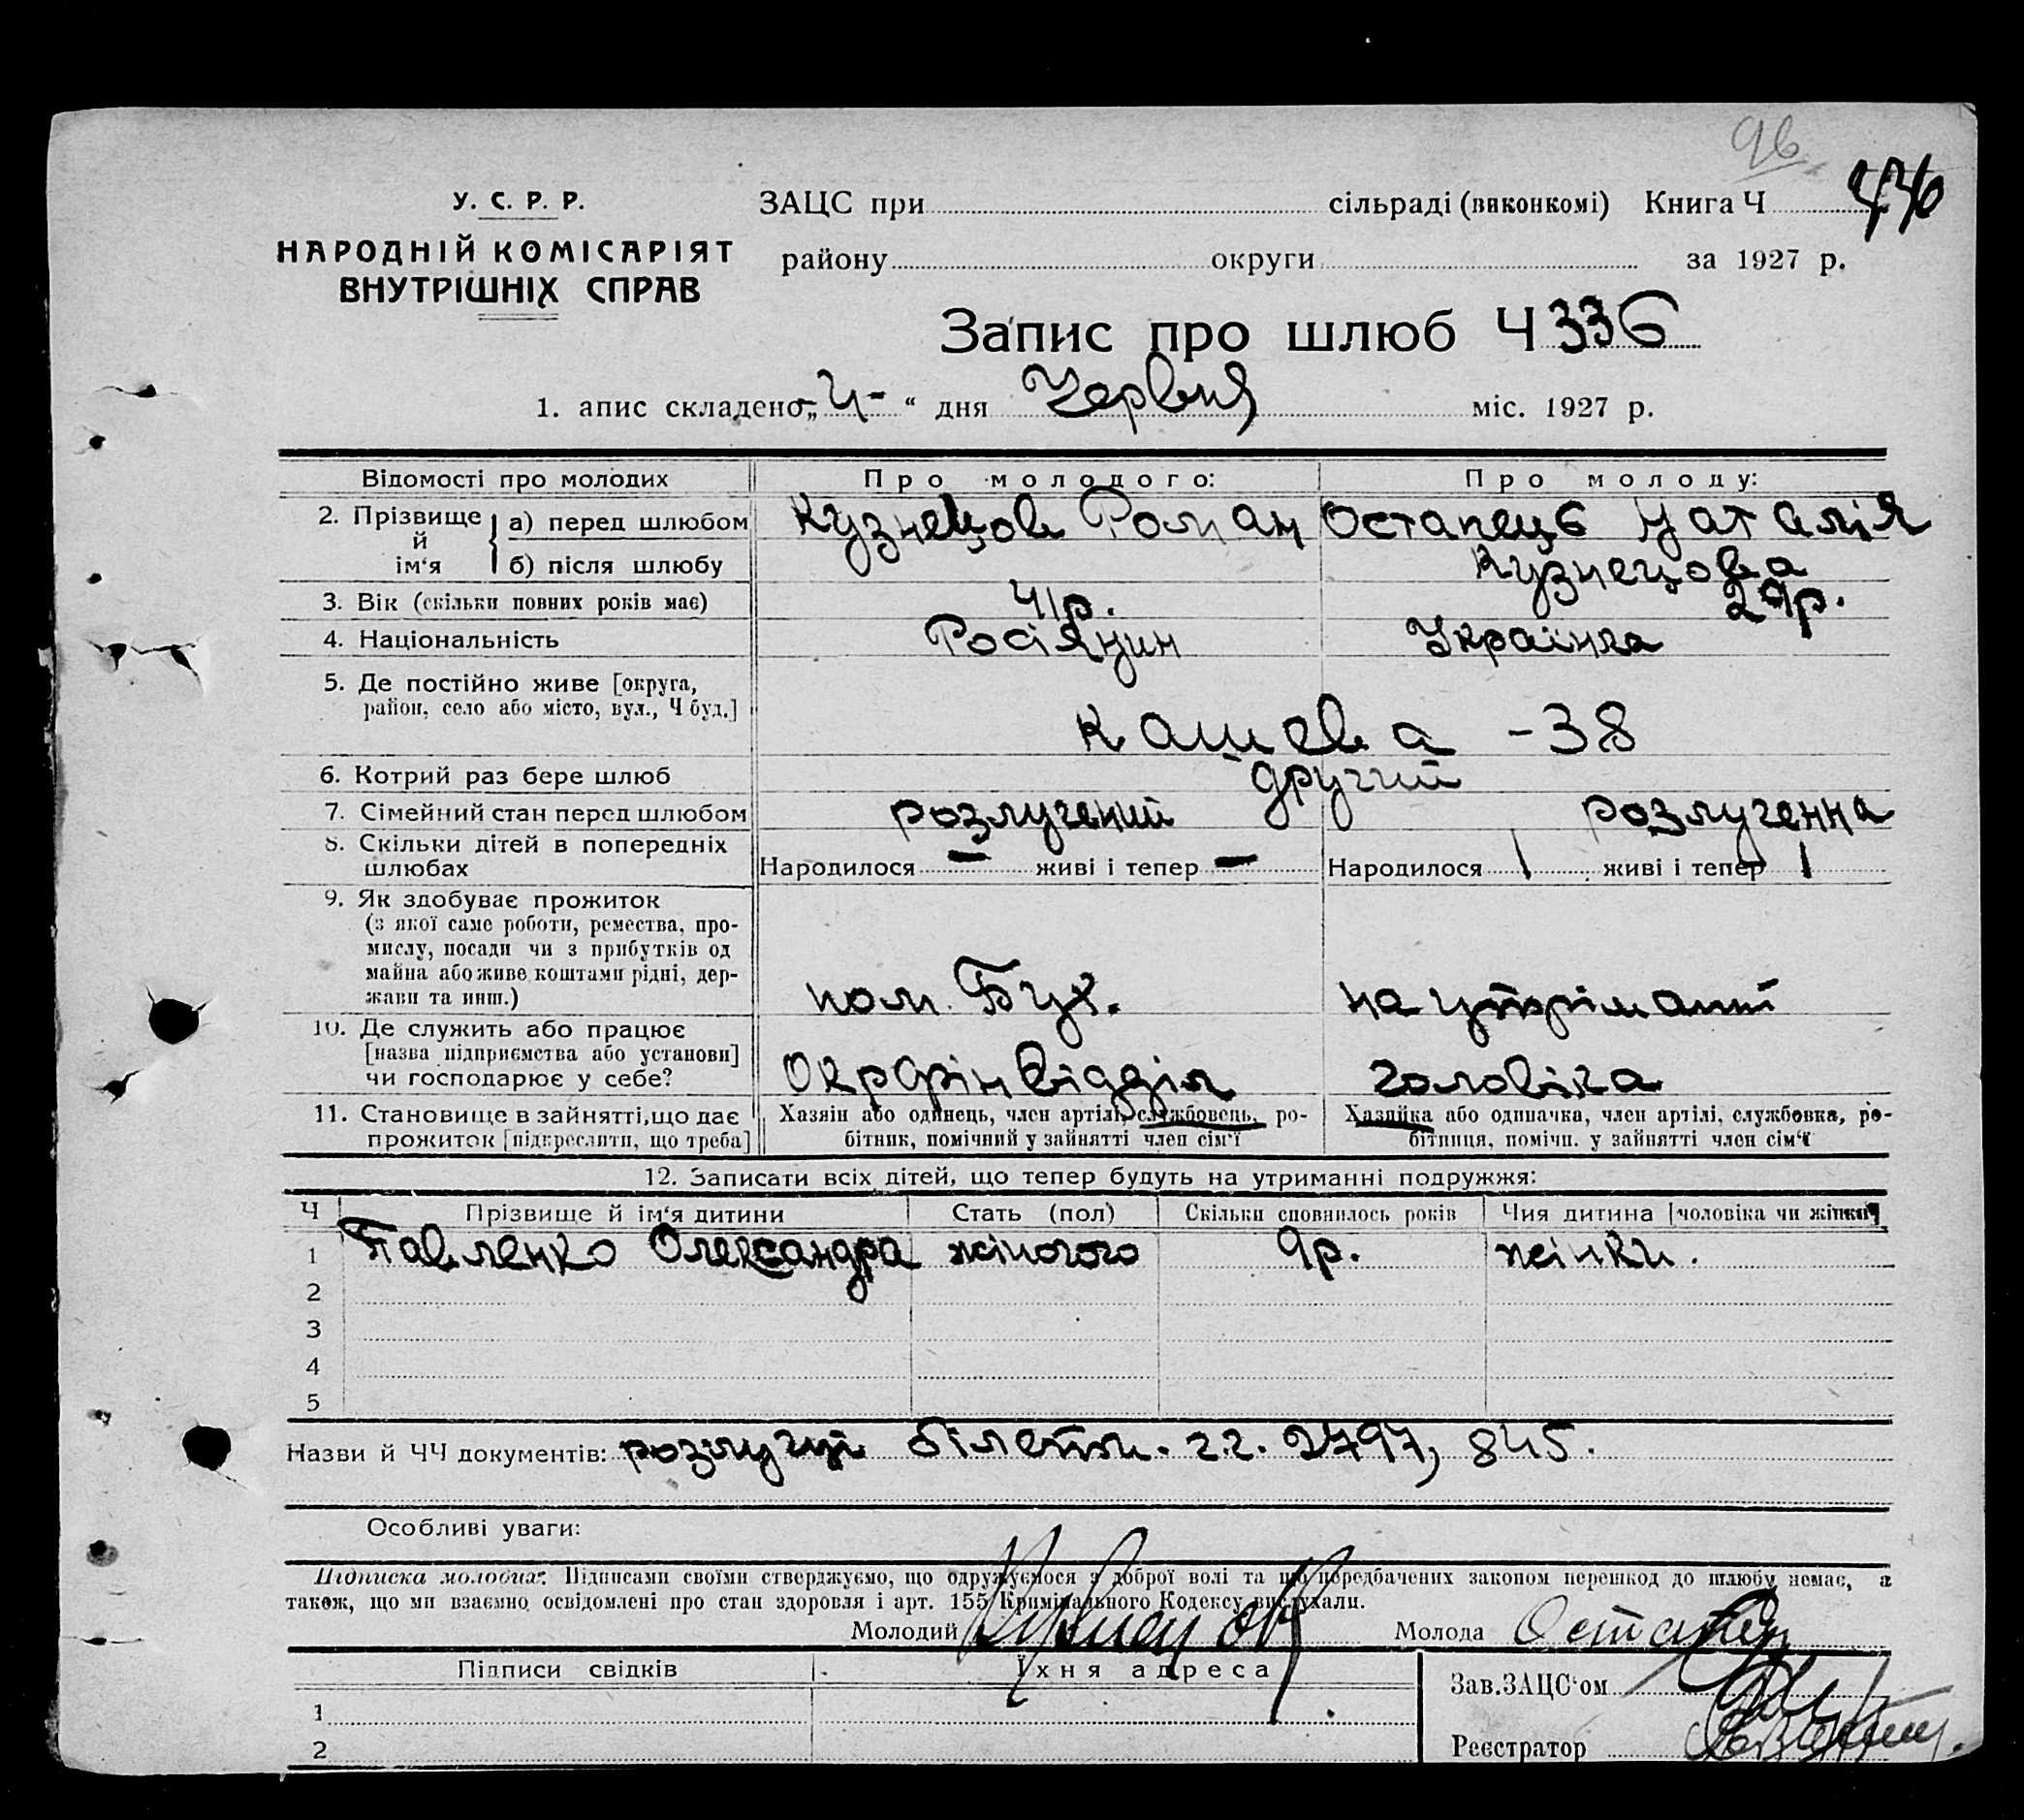 96
У. С. Р. Р.
НАРОДНІЙ КОМІСАРІЯТ
ВНУТРІШНІХ СПРАВ
ЗАЦС при сільраді (виконкомі) Книга Ч
району округи за 1927 р.
Запис про шлюб Ч 336
1. апис складено „ 4 - “ дня Червня міс. 1927 р.
Відомості про молодих Про молодого: Про молоду:
2. Прізвище й ім‘я а) перед шлюбом Кузнецов Роман Остапець Наталія
б) після шлюбу Кузнецова
3. Вік (скільки повних років має) 41р. 29р.
4. Національність Росіянин Українка
5. Де постійно живе [округа, район, село або місто, вул., Ч буд.] - 38
6. Котрий раз бере шлюб другий
7. Сімейний стан перед шлюбом розлучений розлученна
8. Скільки дітей в попередніх шлюбах Народилося — живі і тепер — Народилося 1 живі і тепер 1
9. Як здобуває прожиток
(з якої саме роботи, ремества, про-
мислу, посади чи з прибутків од
майна або живе коштами рідні, дер-
жави та инш.) пом. Бух. на утріманні
10. Де служить або працює
[назва підприємства або установи]
чи господарює у себе? Окрфінвідділ чоловіка
11. Становище в зайнятті, що дає
прожиток [підкреслити, що треба]
Хазяін або одинець, член артілі, службовець, ро-
бітник, помічний у зайнятті член сім‘ї
Хазяйка або одиначка, член артілі, службовка, ро-
бітниця, помічн. у зайнятті член сім‘ї
12. Записати всіх дітей, що тепер будуть на утриманні подружжя:
Ч Прізвище й ім‘я дитини Стать (пол) Скільки сповнилось років Чия дитина [чоловіка чи жінки]
1 Павленко Олександра жіночого 9р. жінки.
2
3
4
5
Назви й ЧЧ документів: розлучні білети. г.г. 2797, 845.
Особливі уваги:
Підписка молодих: Підписами своїми стверджуємо, що одружуємося з доброї волі та що передбачених законом перешкод до шлюбу немає, а
також, що ми взаємно освідомлені про стан здоровля і арт. 155 Кримінального Кодексу вислухали.
Молодий Кузнецов Молода Остапец
Підписи свідків Їхня адреса
Зав.ЗАЦС‘ом
1
2
Реєстратор